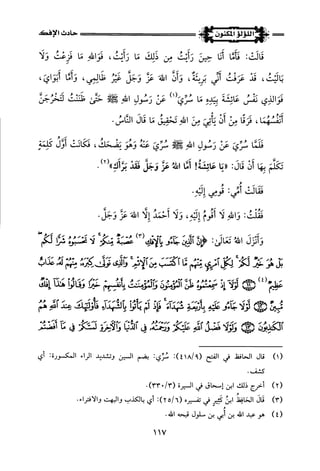 اللؤلؤ المكنون
حادث الإفك
قَالَتْ: فَأَمَّا أَنَا حِينَ رَأَيْتُ مِن ذَلِكَ مَا رَأَيْتُ، فَوَاللهِ مَا فَزِعْتُ وَلَا
بَالَيْتُ، قَدْ عَرَفْتُ أَنِّي بَرِيئَةٌ، وَأَنَّ اللهَ عَزَّ وَجَلَّ غَيْرُ ظَالِمِي، وَأَمَّا أَبَوَايَ،
فَوَالذِي نَفْسُ عَائِشَةَ بِيَدِهِ مَا سُرِّيَ(١) عَنْ رَسُولِ اللهِ ﷺ حَتَّى ظَنَنْتُ لَتَخْرُجَنَّ
أَنْفُسُهُمَا، فَرَقًا مِنْ أَنْ يَأْتِيَ مِنَ اللهِ تَحْقِيقُ مَا قَالَ النَّاسُ.
فَلَمَّا سُرِّيَ عَنْ رَسُولِ اللهِ ﷺ سُرِّيَ عَنْهُ وَهُوَ يَضْحَكُ، فَكَانَتْ أَوَّلُ كَلِمَةٍ
تَكَلَّمَ بِهَا أَنْ قَالَ: «يَا عَائِشَةُ! أَمَّا اللهُ عَزَّ وَجَلَّ فَقَدْ بَرَّأَكِ»(٢).
فَقَالَتْ أُمِّي: قُومِي إِلَيْهِ.
فَقُلْتُ: وَاللهِ لَا أَقُومُ إِلَيْهِ، وَلَا أَحْمَدُ إِلَّا اللهَ عَزَّ وَجَلَّ.
وَأَنْزَلَ اللهُ تَعَالَى: ﴿إِنَّ الَّذِينَ جَاءُو بِالْإِفْكِ(٣) عُصْبَةٌ مِّنكُمْ لَا تَحْسَبُوهُ شَرًّا لَّكُم
بَلْ هُوَ خَيْرٌ لَّكُمْ لِكُلِّ امْرِئٍ مِّنْهُم مَّا اكْتَسَبَ مِنَ الْإِثْمِ وَالَّذِي تَوَلَّى كِبْرَهُ مِنْهُمْ لَهُ عَذَابٌ
عَظِيمٌ(٤) لَوْلَا إِذْ سَمِعْتُمُوهُ ظَنَّ الْمُؤْمِنُونَ وَالْمُؤْمِنَاتُ بِأَنفُسِهِمْ خَيْرًا وَقَالُوا هَذَا إِفْكٌ
مُّبِينٌ لَوْلَا جَاءُو عَلَيْهِ بِأَرْبَعَةِ شُهَدَاءَ فَإِذْ لَمْ يَأْتُوا بِالشُّهَدَاءِ فَأُولَئِكَ عِندَ اللَّهِ هُمُ
الْكَاذِبُونَ وَلَوْلَا فَضْلُ اللَّهِ عَلَيْكُمْ وَرَحْمَتُهُ فِي الدُّنْيَا وَالْآخِرَةِ لَمَسَّكُمْ فِي مَا أَفَضْتُمْ
(١) قال الحافظ في الفتح (٤١٨/٩): سُرِّيَ: بضم السين وتشديد الراء المكسورة: أي
كشف.
(٢) أخرج ذلك ابن إسحاق في السيرة (٣٣٠/٣).
(٣) قَالَ الحَافِظُ ابنُ كَثِيرٍ في تفسيره (٢٥/٦): أي بالكذب والبهت والافتراء.
(٤) هو عبد الله بن أُبي بن سلول قبحه الله.
١١٧